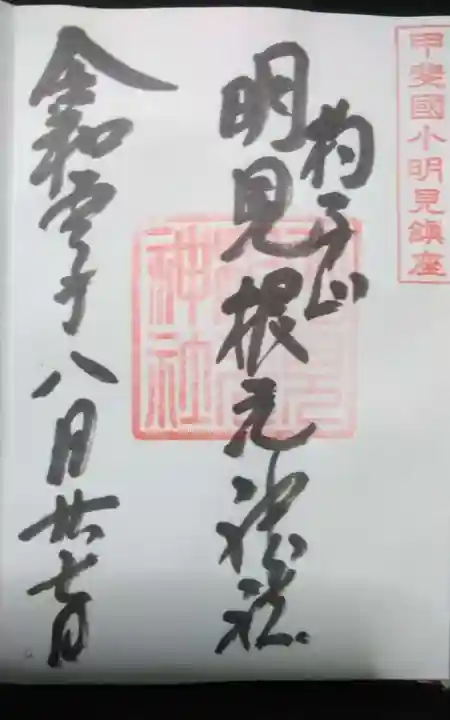 甲斐國小明見鎮座
杓子山
明見根元神社
令和元年八月廿七日
神社